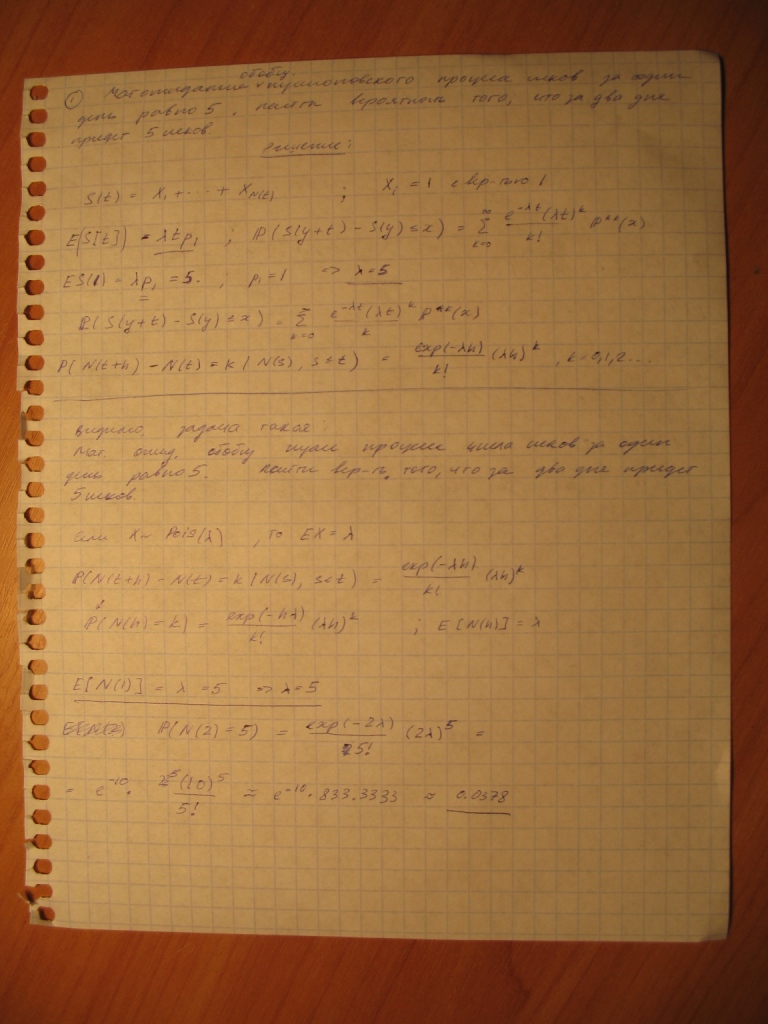 обобщ.
① Матожидание пуассоновского процесса исков за один
день равно 5, найти вероятность того, что за два дня
придет 5 исков.
Решение:
S(t) = X₁ + ··· + X_{N(t)} ; X_i = 1 с вер-тью 1
E[S[t]] = λtp₁ ; P(S(y+t) − S(y) ≤ x) = ∑_{k=0}^{∞} e^{-λt}(λt)^k / k! P^{*k}(x)
ES(1) = λp₁ = 5. ; p₁ = 1 => λ = 5
P(S(y+t) − S(y) ≤ x) = ∑_{k=0}^{∞} e^{-λt}(λt)^k / k P^{*k}(x)
P(N(t+h) − N(t) = k | N(s), s ≤ t) = exp(-λh) / k! (λh)^k , k = 0,1,2....
видимо, задача такая:
Мат. ожид. обобщ пуасс процесса числа исков за один
день равно 5. Найти вер-ть того, что за два дня придет
5 исков.
если X ~ Pois(λ) , то EX = λ
P(N(t+h) − N(t) = k | N(s), s ≤ t) = exp(-λh) / k! (λh)^k
P(N(h) = k) = exp(-hλ) / k! (λh)^k ; E[N(h)] = λ
E[N(1)] = λ = 5 => λ = 5
P(N(2) = 5) = exp(-2λ) / 5! (2λ)^5 =
= e^{-10} · (10)^5 / 5! ≈ e^{-10} · 833.3333 ≈ 0.0378